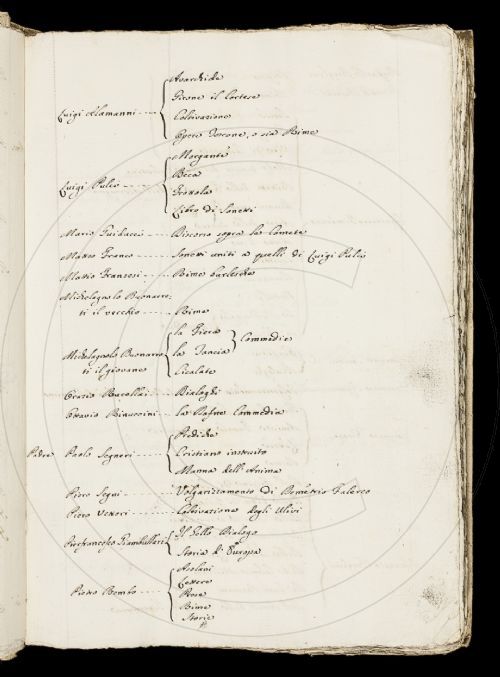 Luigi Alamanni ---- Avarchide
Girone il Cortese
Coltivazione
Opere Toscane, o sia Rime
Luigi Pulci ---- Morgante
Beca
Frottola
Libro di Sonetti
Mario Guiducci --- Discorso sopra la Comete
Matteo Franco ---- Sonetti uniti a quelli di Luigi Pulci
Mattio Franzesi --- Rime burlesche
Michelagnolo Buonarro-
ti il vecchio ---- Rime
Michelagnolo Buonarro-
ti il giovane
la Fiera
la Tancia
Commedie
Cicalate
Orazio Rucellai ---- Dialoghi
Ottavio Rinuccini --- la Dafne Commedia
Padre Paolo Segneri ---- Prediche
Cristiano instruito
Manna dell'Anima
Piero Segni ------ Volgarizzamento di Demetrio Falereo
Piero Vettori ---- Coltivazione degli Ulivi
Pierfrancesco Giambullari Il Gello Dialogo
Storia d'Europa
Pietro Bembo ---- Asolani
Lettere
Prose
Rime
Storie